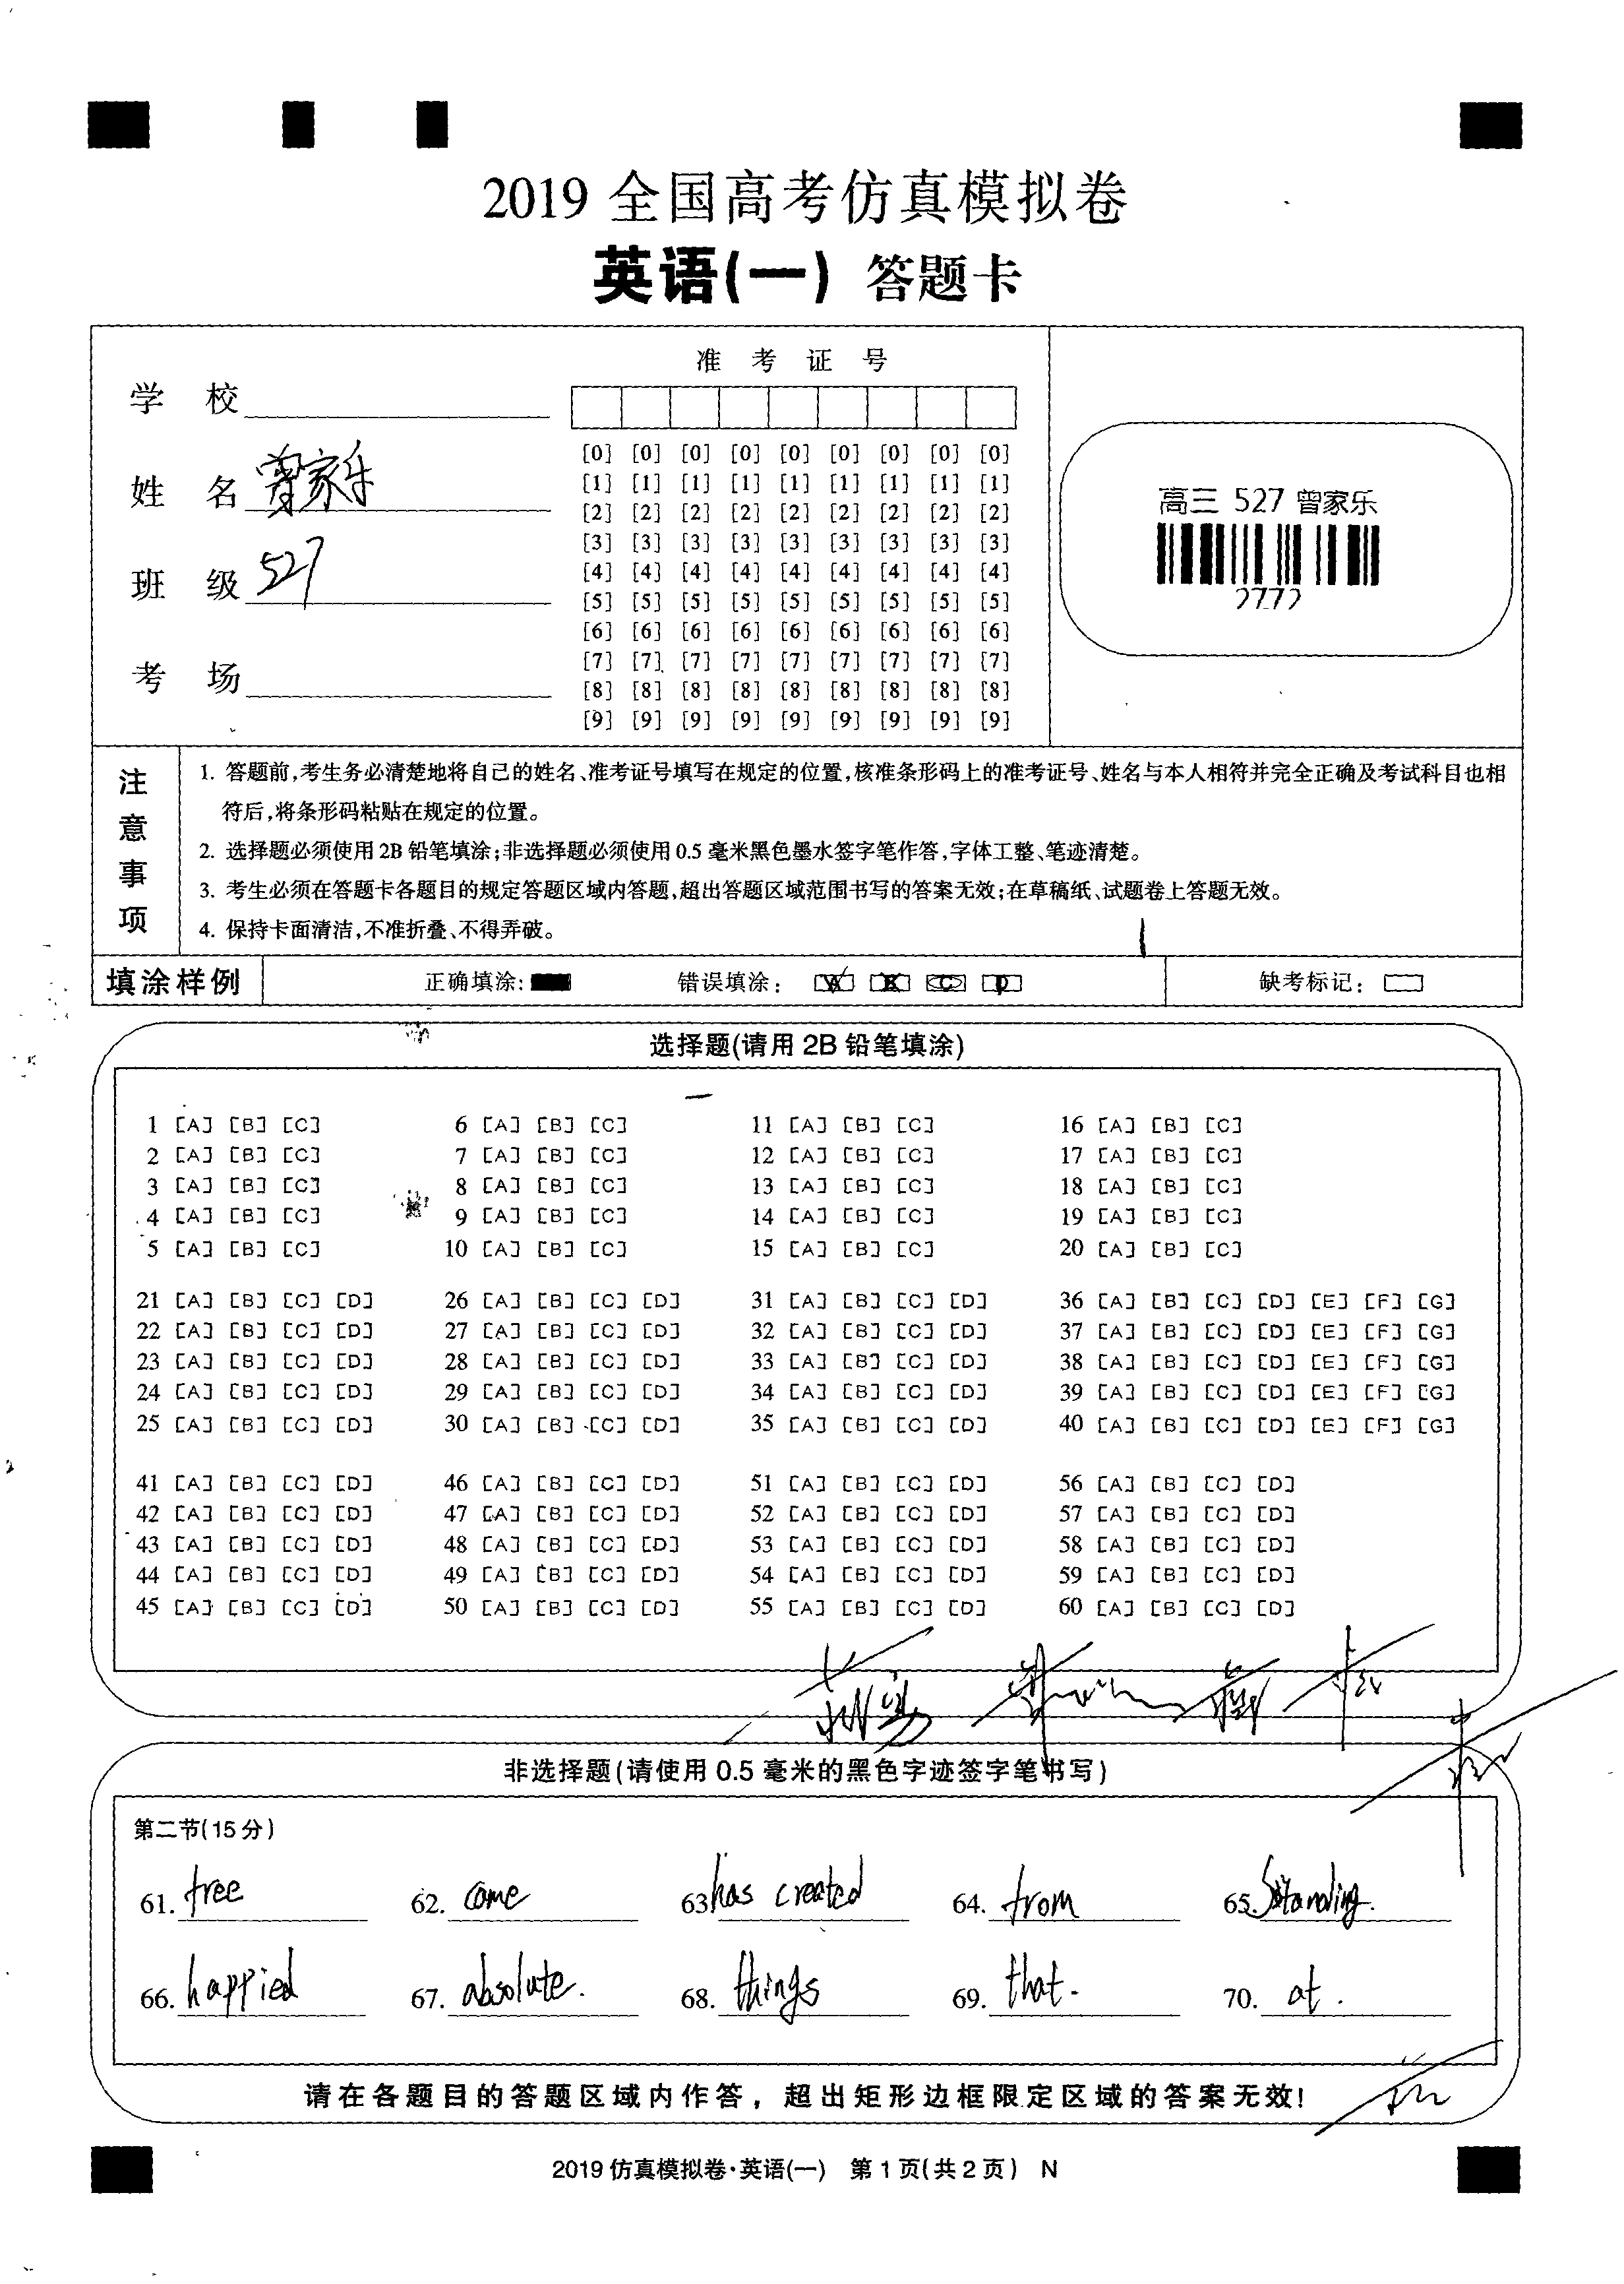 2019 全国高考仿真模拟卷
英语(一) 答题卡
准 考 证 号
学 校
姓 名 曾家乐
班 级 527
考 场
[0] [0] [0] [0] [0] [0] [0] [0] [0]
[1] [1] [1] [1] [1] [1] [1] [1] [1]
[2] [2] [2] [2] [2] [2] [2] [2] [2]
[3] [3] [3] [3] [3] [3] [3] [3] [3]
[4] [4] [4] [4] [4] [4] [4] [4] [4]
[5] [5] [5] [5] [5] [5] [5] [5] [5]
[6] [6] [6] [6] [6] [6] [6] [6] [6]
[7] [7] [7] [7] [7] [7] [7] [7] [7]
[8] [8] [8] [8] [8] [8] [8] [8] [8]
[9] [9] [9] [9] [9] [9] [9] [9] [9]
高三 527 曾家乐
2772
注意事项
1. 答题前,考生务必清楚地将自己的姓名、准考证号填写在规定的位置,核准条形码上的准考证号、姓名与本人相符并完全正确及考试科目也相
符后,将条形码粘贴在规定的位置。
2. 选择题必须使用2B铅笔填涂;非选择题必须使用0.5毫米黑色墨水签字笔作答,字体工整、笔迹清楚。
3. 考生必须在答题卡各题目的规定答题区域内答题,超出答题区域范围书写的答案无效;在草稿纸、试题卷上答题无效。
4. 保持卡面清洁,不准折叠、不得弄破。
填涂样例 正确填涂: 错误填涂: [A] [B] [C] [D] 缺考标记:
选择题(请用2B铅笔填涂)
1 [A] [B] [C] 6 [A] [B] [C] 11 [A] [B] [C] 16 [A] [B] [C]
2 [A] [B] [C] 7 [A] [B] [C] 12 [A] [B] [C] 17 [A] [B] [C]
3 [A] [B] [C] 8 [A] [B] [C] 13 [A] [B] [C] 18 [A] [B] [C]
4 [A] [B] [C] 9 [A] [B] [C] 14 [A] [B] [C] 19 [A] [B] [C]
5 [A] [B] [C] 10 [A] [B] [C] 15 [A] [B] [C] 20 [A] [B] [C]
21 [A] [B] [C] [D] 26 [A] [B] [C] [D] 31 [A] [B] [C] [D] 36 [A] [B] [C] [D] [E] [F] [G]
22 [A] [B] [C] [D] 27 [A] [B] [C] [D] 32 [A] [B] [C] [D] 37 [A] [B] [C] [D] [E] [F] [G]
23 [A] [B] [C] [D] 28 [A] [B] [C] [D] 33 [A] [B] [C] [D] 38 [A] [B] [C] [D] [E] [F] [G]
24 [A] [B] [C] [D] 29 [A] [B] [C] [D] 34 [A] [B] [C] [D] 39 [A] [B] [C] [D] [E] [F] [G]
25 [A] [B] [C] [D] 30 [A] [B] [C] [D] 35 [A] [B] [C] [D] 40 [A] [B] [C] [D] [E] [F] [G]
41 [A] [B] [C] [D] 46 [A] [B] [C] [D] 51 [A] [B] [C] [D] 56 [A] [B] [C] [D]
42 [A] [B] [C] [D] 47 [A] [B] [C] [D] 52 [A] [B] [C] [D] 57 [A] [B] [C] [D]
43 [A] [B] [C] [D] 48 [A] [B] [C] [D] 53 [A] [B] [C] [D] 58 [A] [B] [C] [D]
44 [A] [B] [C] [D] 49 [A] [B] [C] [D] 54 [A] [B] [C] [D] 59 [A] [B] [C] [D]
45 [A] [B] [C] [D] 50 [A] [B] [C] [D] 55 [A] [B] [C] [D] 60 [A] [B] [C] [D]
非选择题(请使用0.5毫米的黑色字迹签字笔书写)
第二节(15分)
61. free 62. come 63. has created 64. from 65. Standing.
66. happied 67. absolute. 68. things 69. that. 70. at.
请在各题目的答题区域内作答，超出矩形边框限定区域的答案无效!
2019仿真模拟卷·英语(一) 第1页(共2页) N